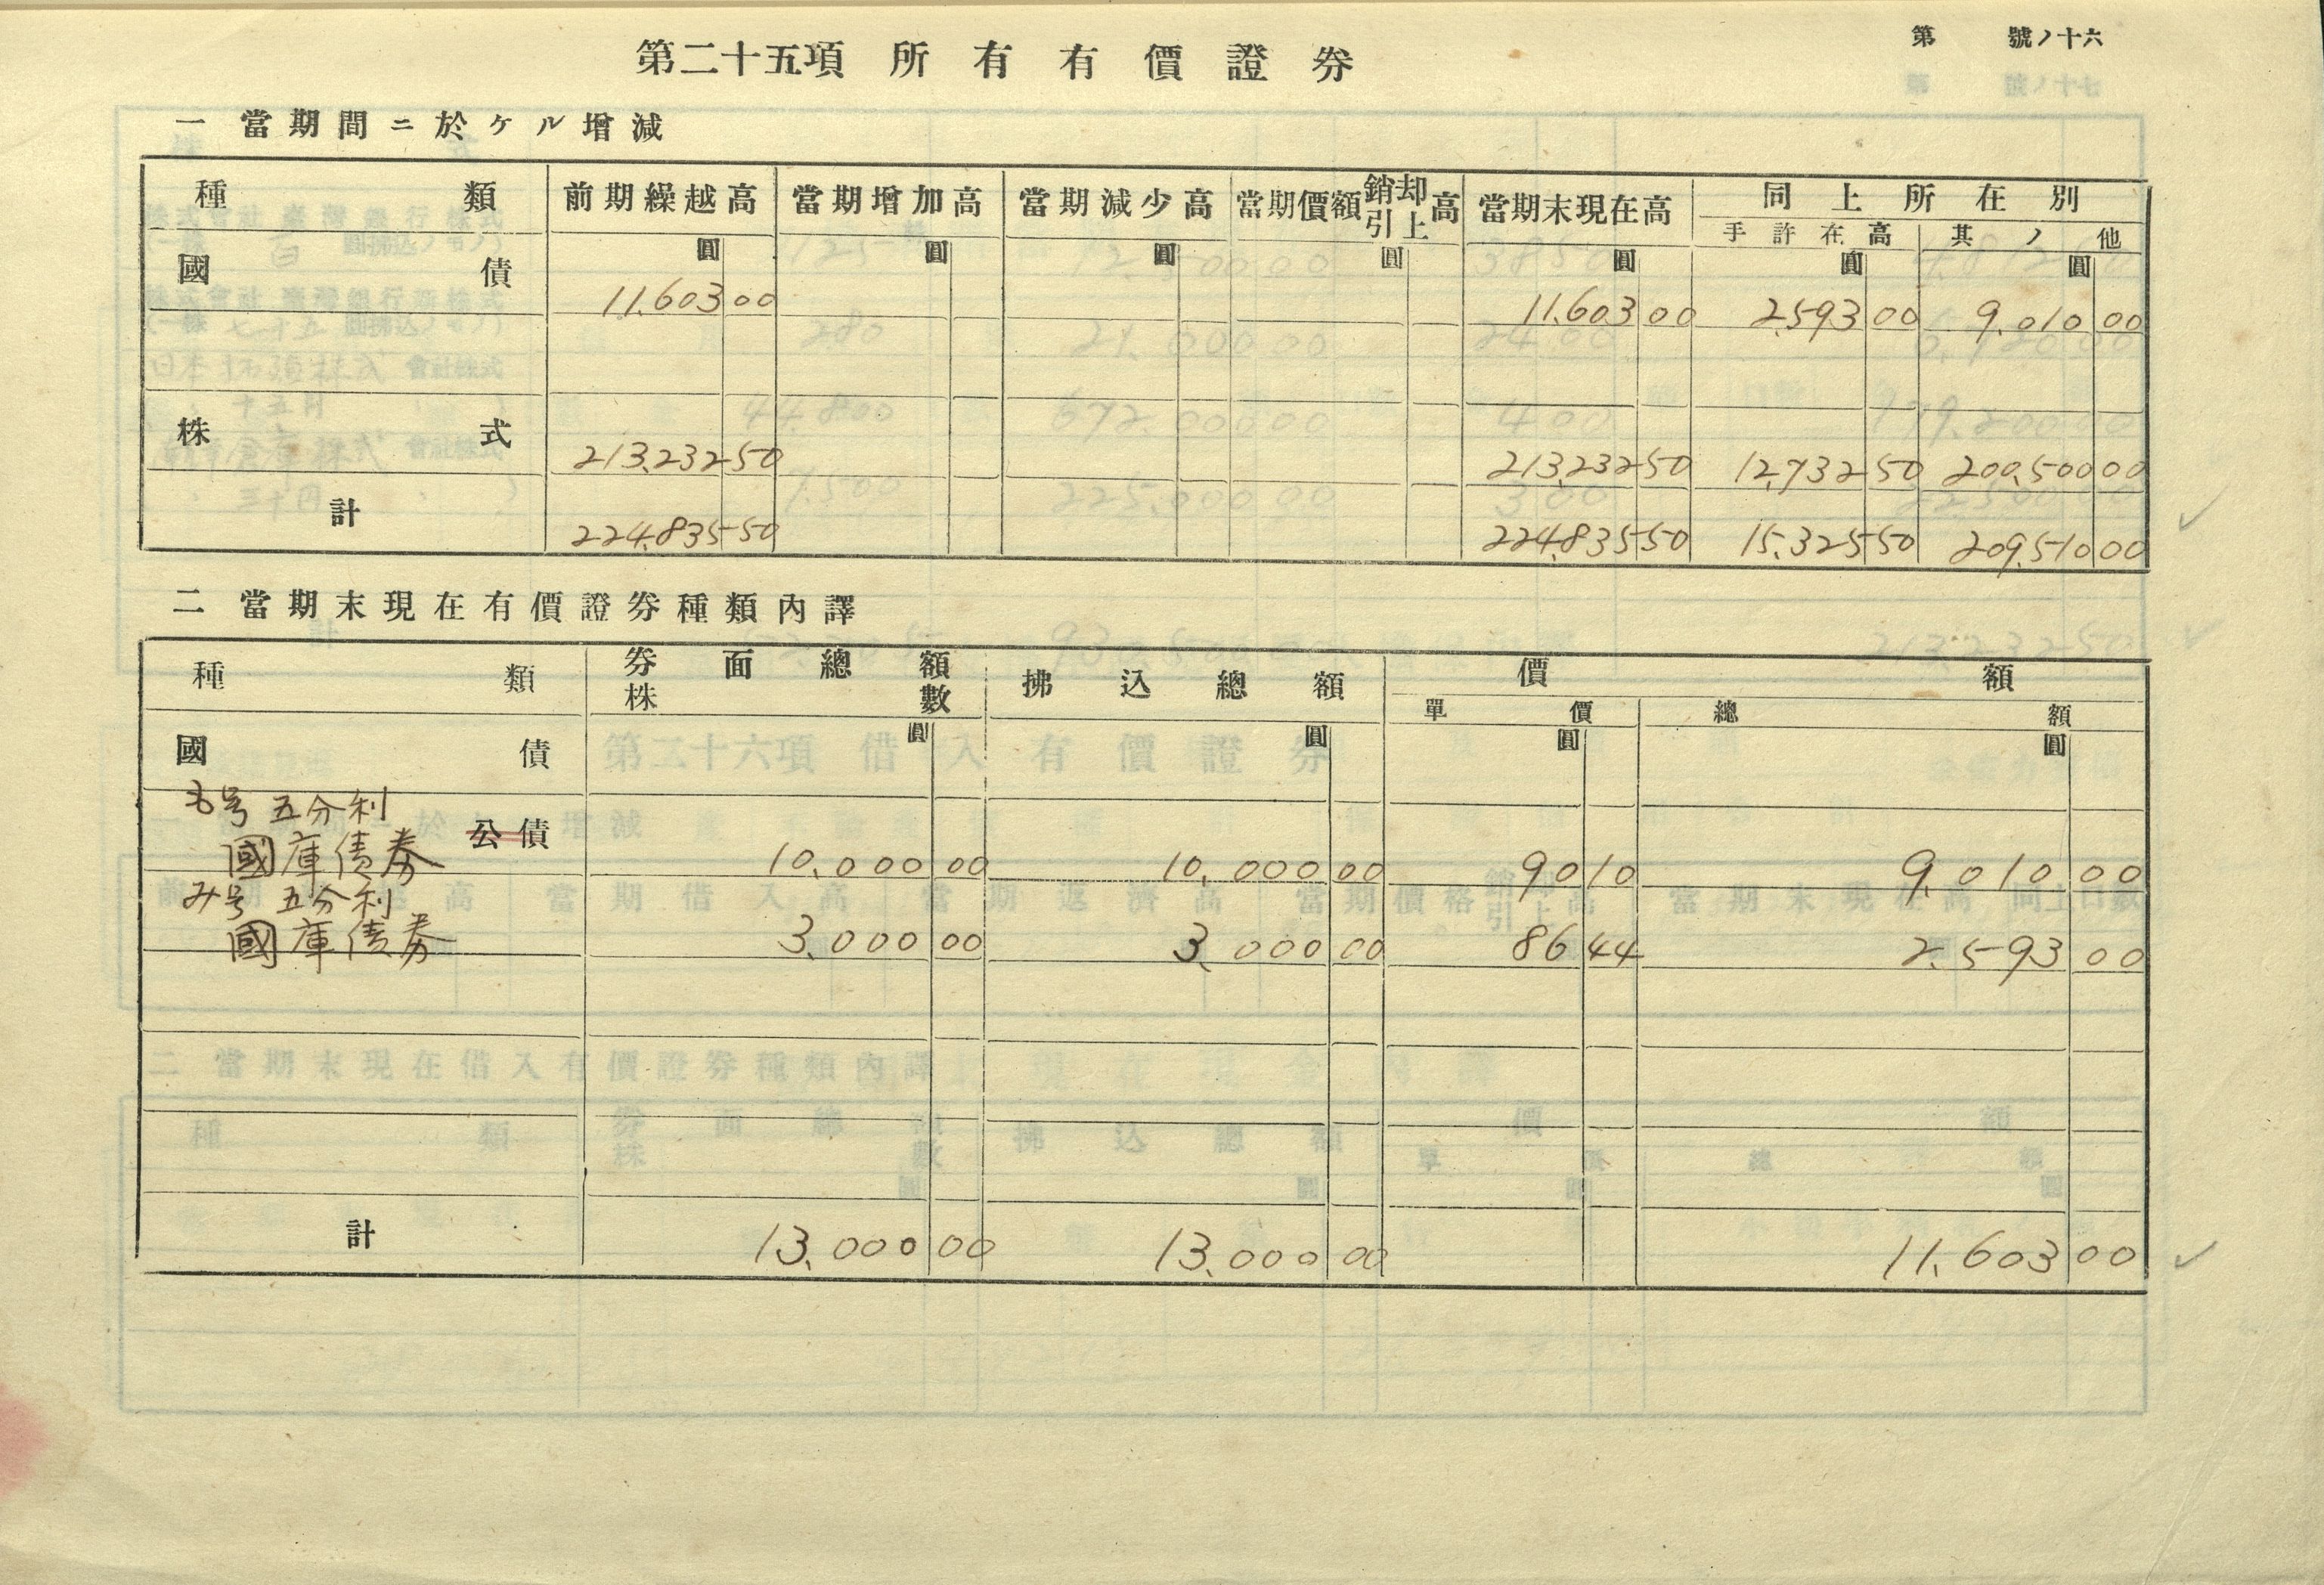 第 號ノ十六
第二十五項 所有有價證券
一 當期間ニ於ケル增減
種類 前期繰越高 當期增加高 當期減少高 當期價額銷却引上高 當期末現在高 同上所在別
手許在高 其ノ他
圓 圓 圓 圓 圓 圓 圓
國債 11.603 00 11.603 00 2.593 00 9.010 00
株式 213.232 50 213.232 50 12.732 50 200.500 00
計 224.835 50 224.835 50 15.325 50 209.510 00
二 當期末現在有價證券種類內譯
種類 券面總額 株數 拂込總額 價額
單價 總額
圓 圓 圓 圓
國債
も号 五分利
國庫債券 公債 10.000 00 10.000 00 90 10 9.010 00
み号 五分利
國庫債券 3.000 00 3.000 00 86 44 2.593 00
計 13.000 00 13.000 00 11.603 00